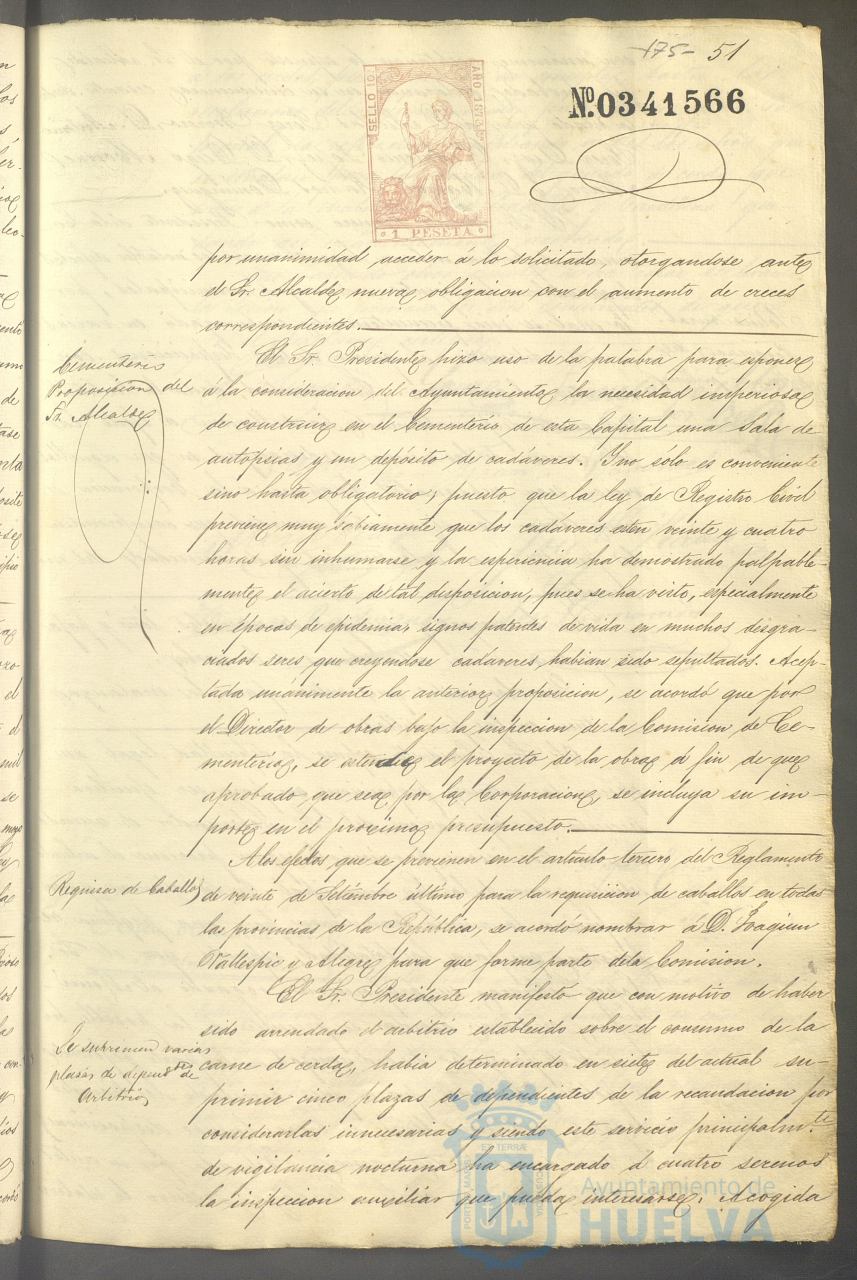 175- 51
SELLO 10º
AÑO 1873
1 PESETA
Nº.0341566
por unanimidad acceder á lo solicitado, otorgandose ante
el Sr. Alcalde nueva obligacion con el aumento de creces
correspondientes.
Cementerio
Proposicion del
Sr. Alcalde
El Sr. Presidente hizo uso de la palabra para esponer
á la consideracion del Ayuntamiento la necesidad imperiosa
de construir en el Cementerio de esta Capital una Sala de
autopsias y un depósito de cadáveres. Y no sólo es conveniente
sino hasta obligatorio, puesto que la ley de Registro Civil
previene muy sabiamente que los cadáveres esten veinte y cuatro
horas sin inhumarse y la esperiencia ha demostrado palpable-
mente el acierto de tal disposicion, pues se ha visto, especialmente
en épocas de epidemia, signos patentes de vida en muchos desgra-
ciados seres que creyendose cadáveres habian sido sepultados. Acep-
tada unánimente la anterior proposicion, se acordó que por
el Director de obras bajo la inspeccion de la Comision de Ce-
menterios, se estienda el proyecto de la obra á fin de que
aprobado que sea por la Corporacion, se incluya su im-
porte en el proximo presupuesto.
Requisa de Caballos
A los efectos que se previenen en el artículo tercero del Reglamento
de veinte de Setembre último para la requisicion de caballos en todas
las provincias de la República, se acordó nombrar á D. Joaquin
Vallespin y Alegre para que forme parte de la Comision.
Se suprimen varias
plazas de depend.tes de
Arbitrios
El Sr. Presidente manifestó que con motivo de haber
sido arrendado el arbitrio establecido sobre el consumo de la
carne de cerda, habia determinado en siete del actual su-
primir cinco plazas de dependientes de la recaudacion por
considerarlas innecesarias y siendo este servicio principalm.te
de vigilancia nocturna ha encargado á cuatro serenos
la inspeccion auxiliar que pueda interesarse. Acogida
Ayuntamiento de
HUELVA